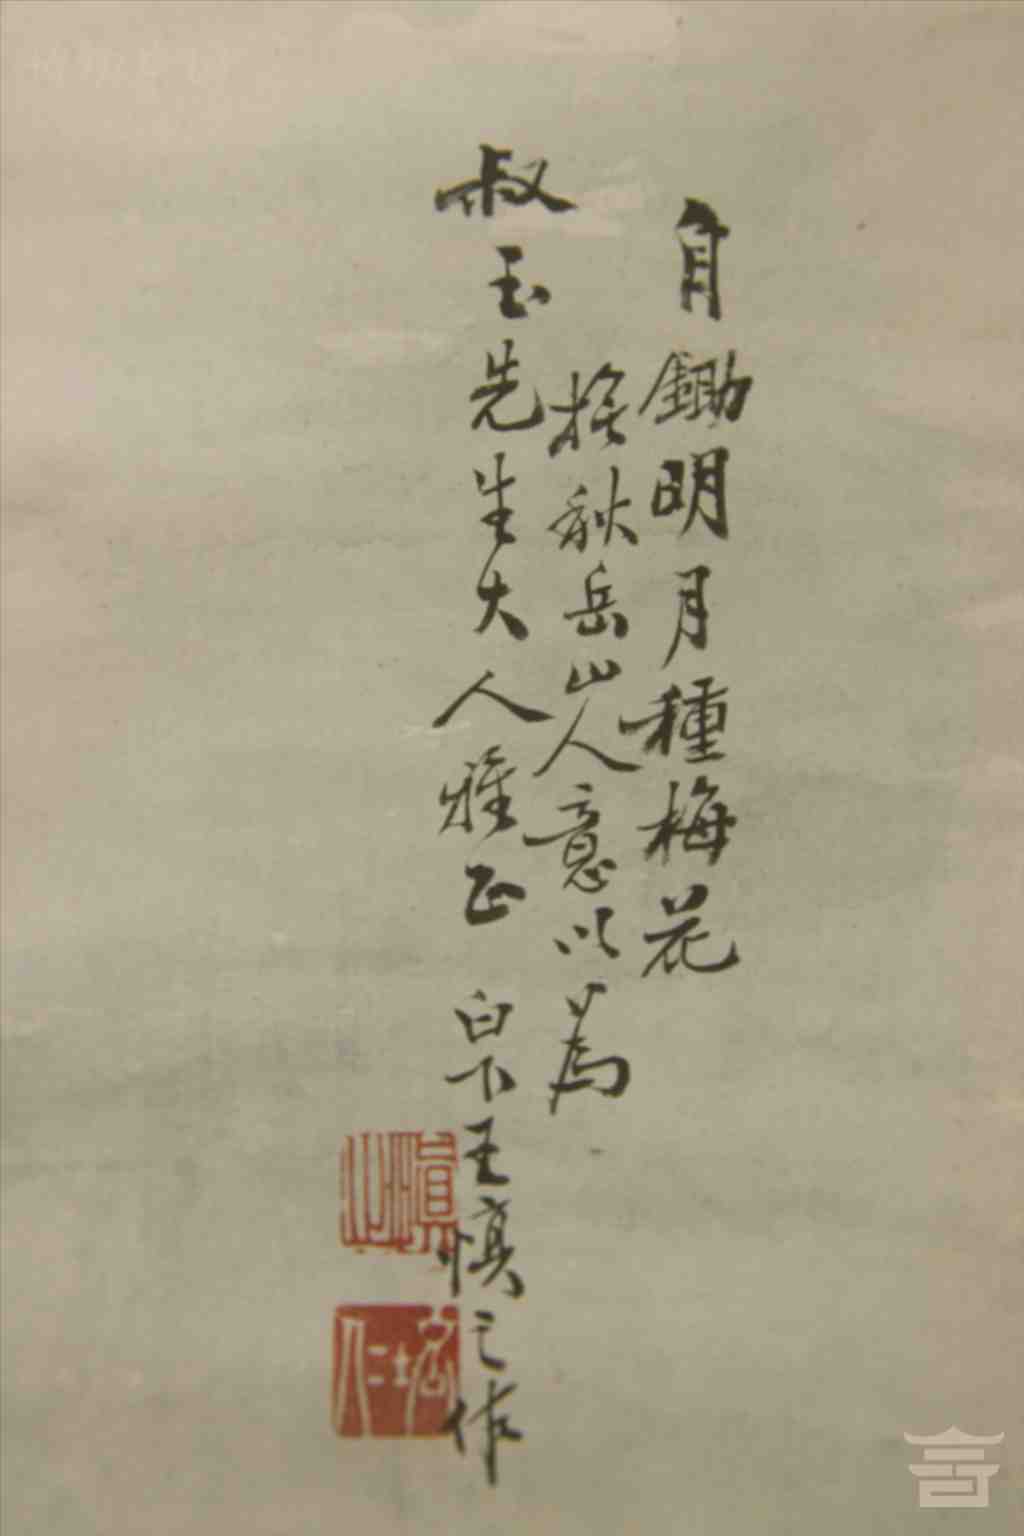 自鋤明月種梅花
擬秋岳山人意以為
叔玉先生大人雅正 白下王慎之作
慎之